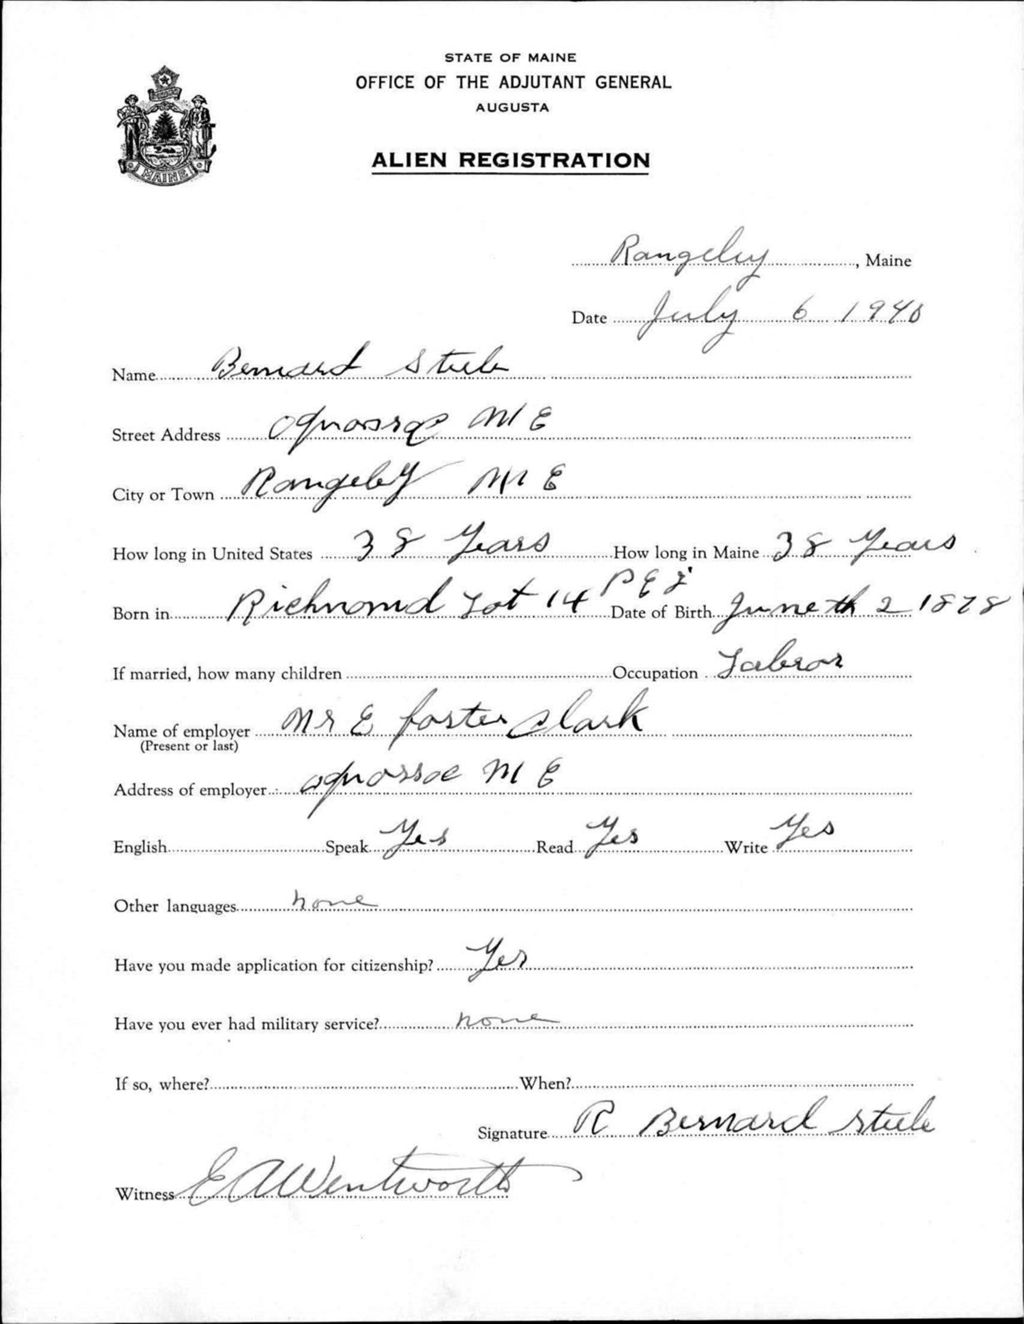 STATE OF MAINE
OFFICE OF THE ADJUTANT GENERAL
AUGUSTA
ALIEN REGISTRATION
MAINE
Rangeley, Maine
Date July 6 1940
Name Bernard Steele
Street Address Oquossoc ME
City or Town Rangeley ME
How long in United States 38 Years How long in Maine 38 Years
Born in Richmond Lot 14 PEI Date of Birth June th 2 1878
If married, how many children Occupation Labror
Name of employer Mr E foster Clark
(Present or last)
Address of employer oquossoc ME
English Speak Yes Read Yes Write Yes
Other languages none
Have you made application for citizenship? Yes
Have you ever had military service? none
If so, where? When?
Signature R Bernard Steele
Witness E A Wentworth